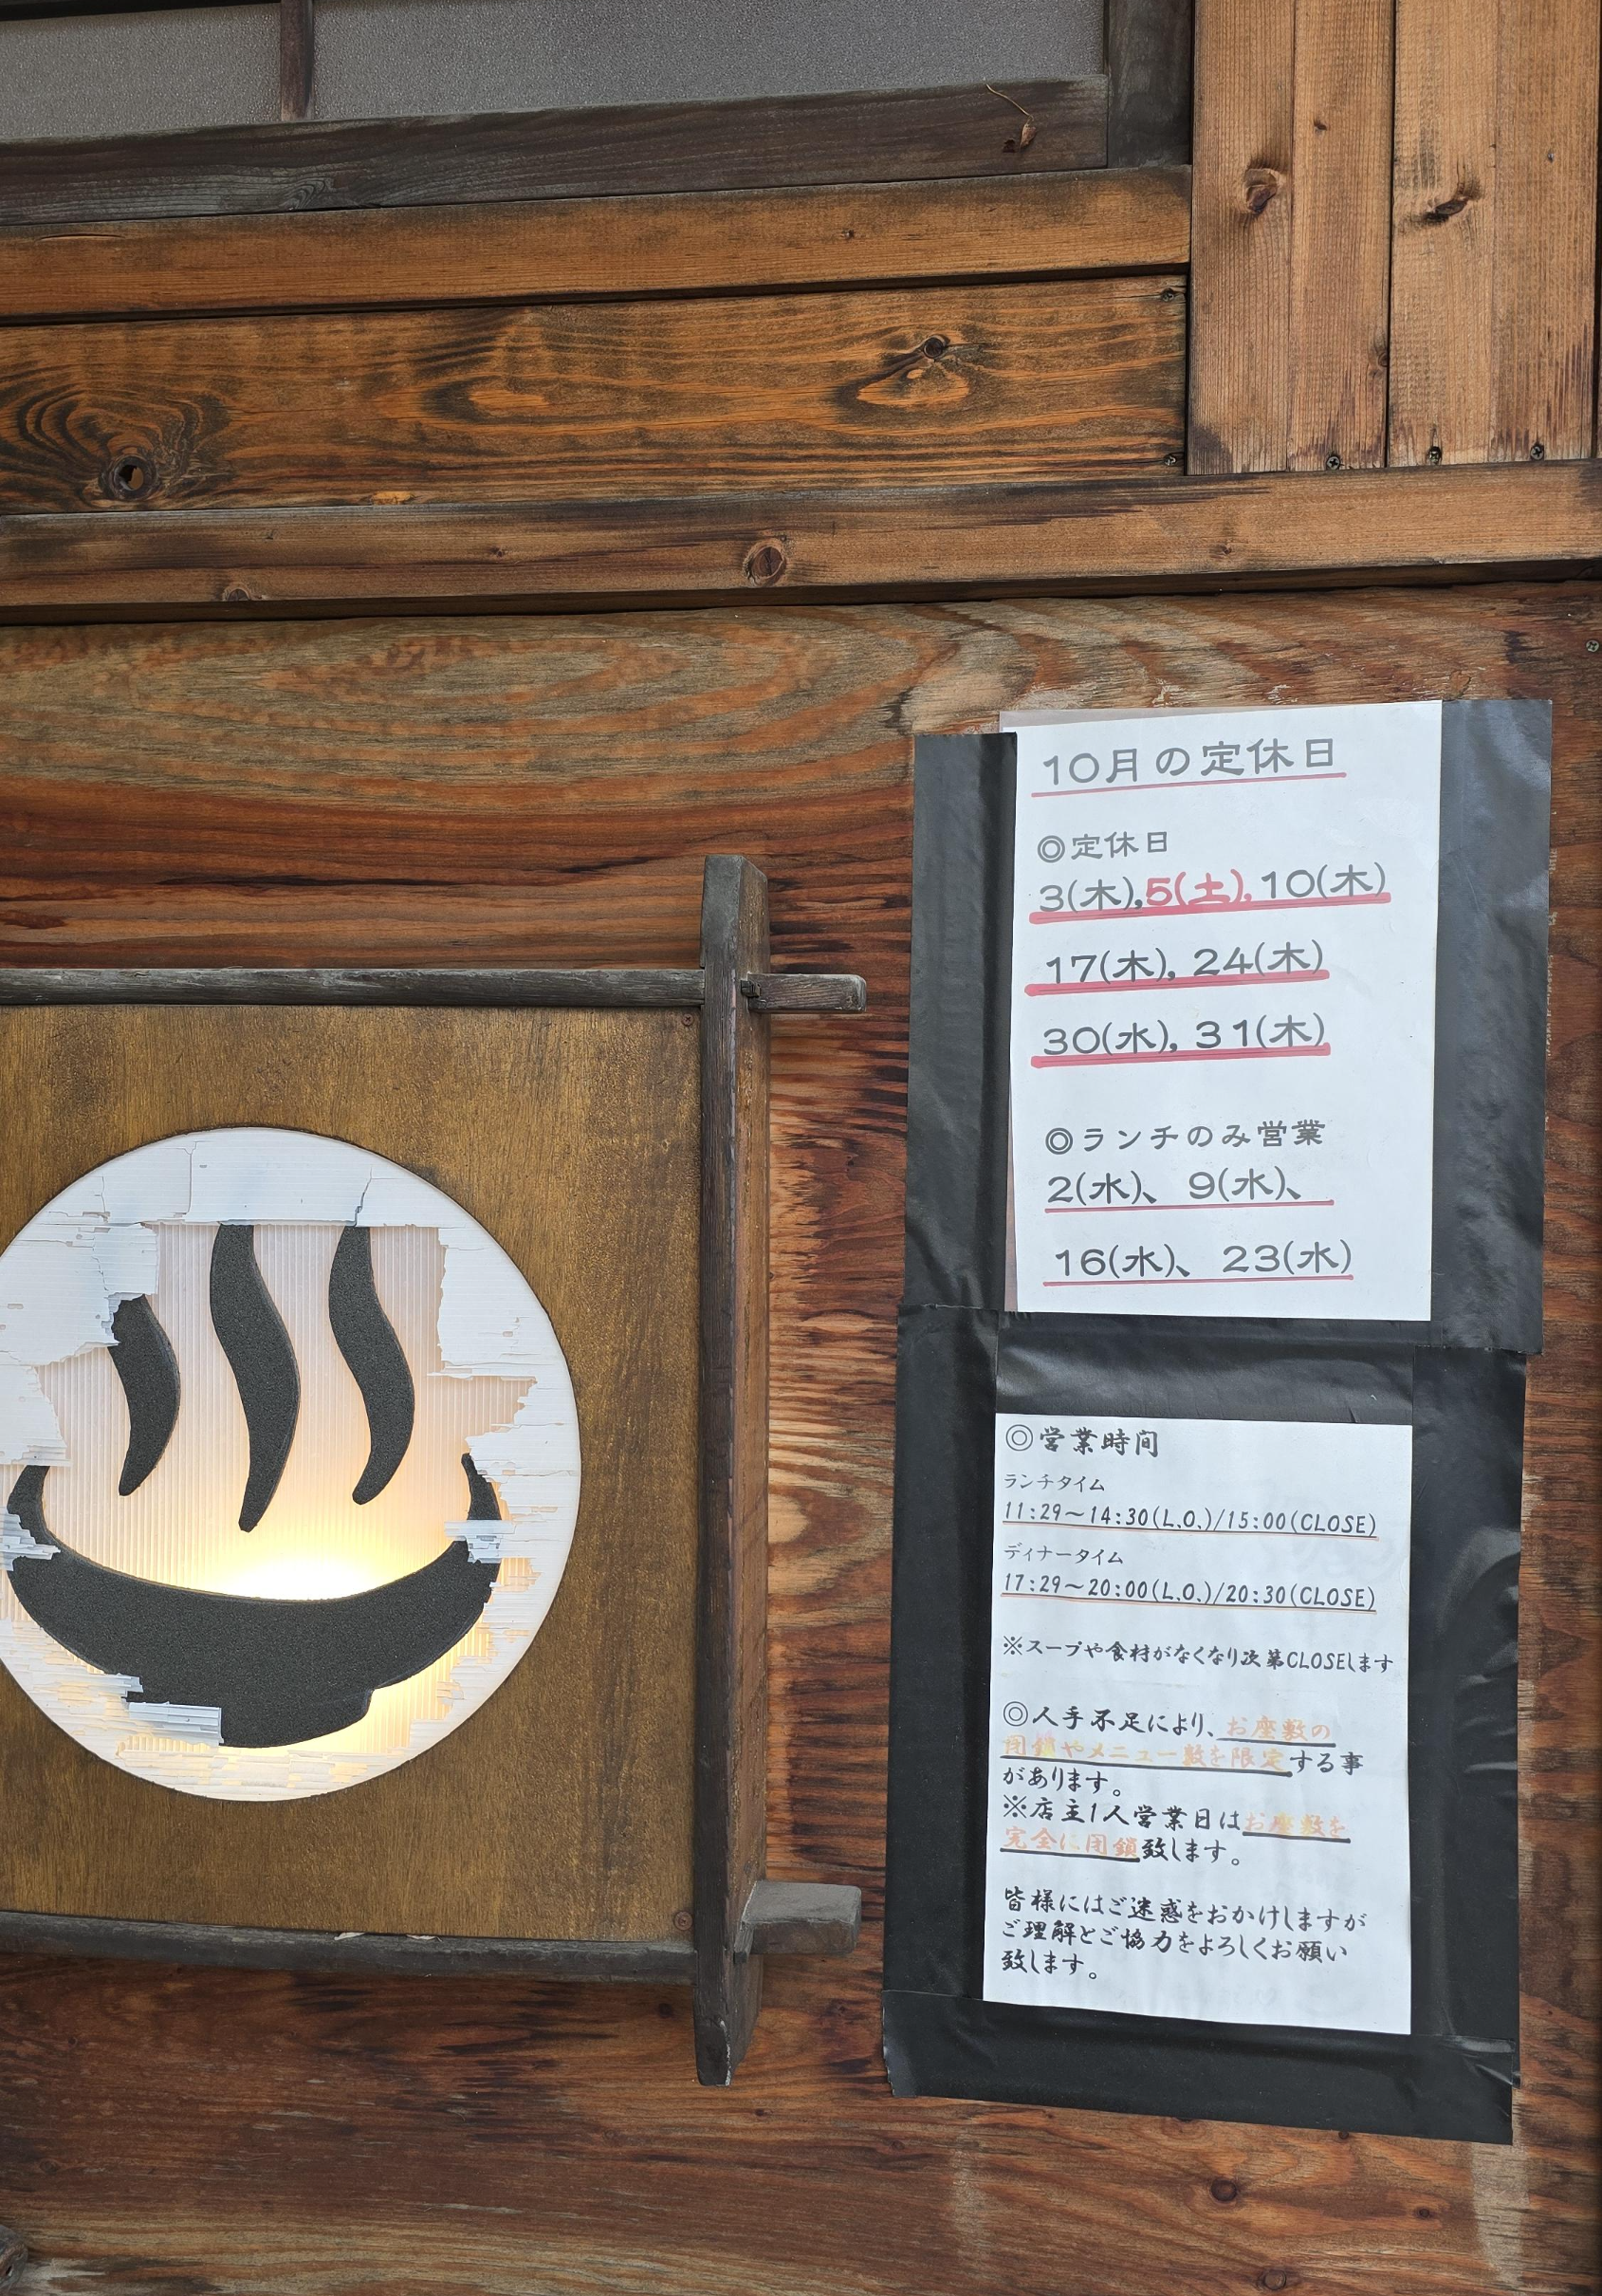 10月の定休日
◎定休日
3(木),5(土),10(木)
17(木), 24(木)
30(水), 31(木)
◎ランチのみ営業
2(水)、 9(水)、
16(水)、 23(水)
◎営業時間
ランチタイム
11:29～14:30(L.O.)/15:00(CLOSE)
ディナータイム
17:29～20:00(L.O.)/20:30(CLOSE)
※スープや食材がなくなり次第CLOSEします
◎人手不足により、お座敷の
閉鎖やメニュー数を限定する事
があります。
※店主1人営業日はお座敷を
完全に閉鎖致します。
皆様にはご迷惑をおかけしますが
ご理解とご協力をよろしくお願い
致します。